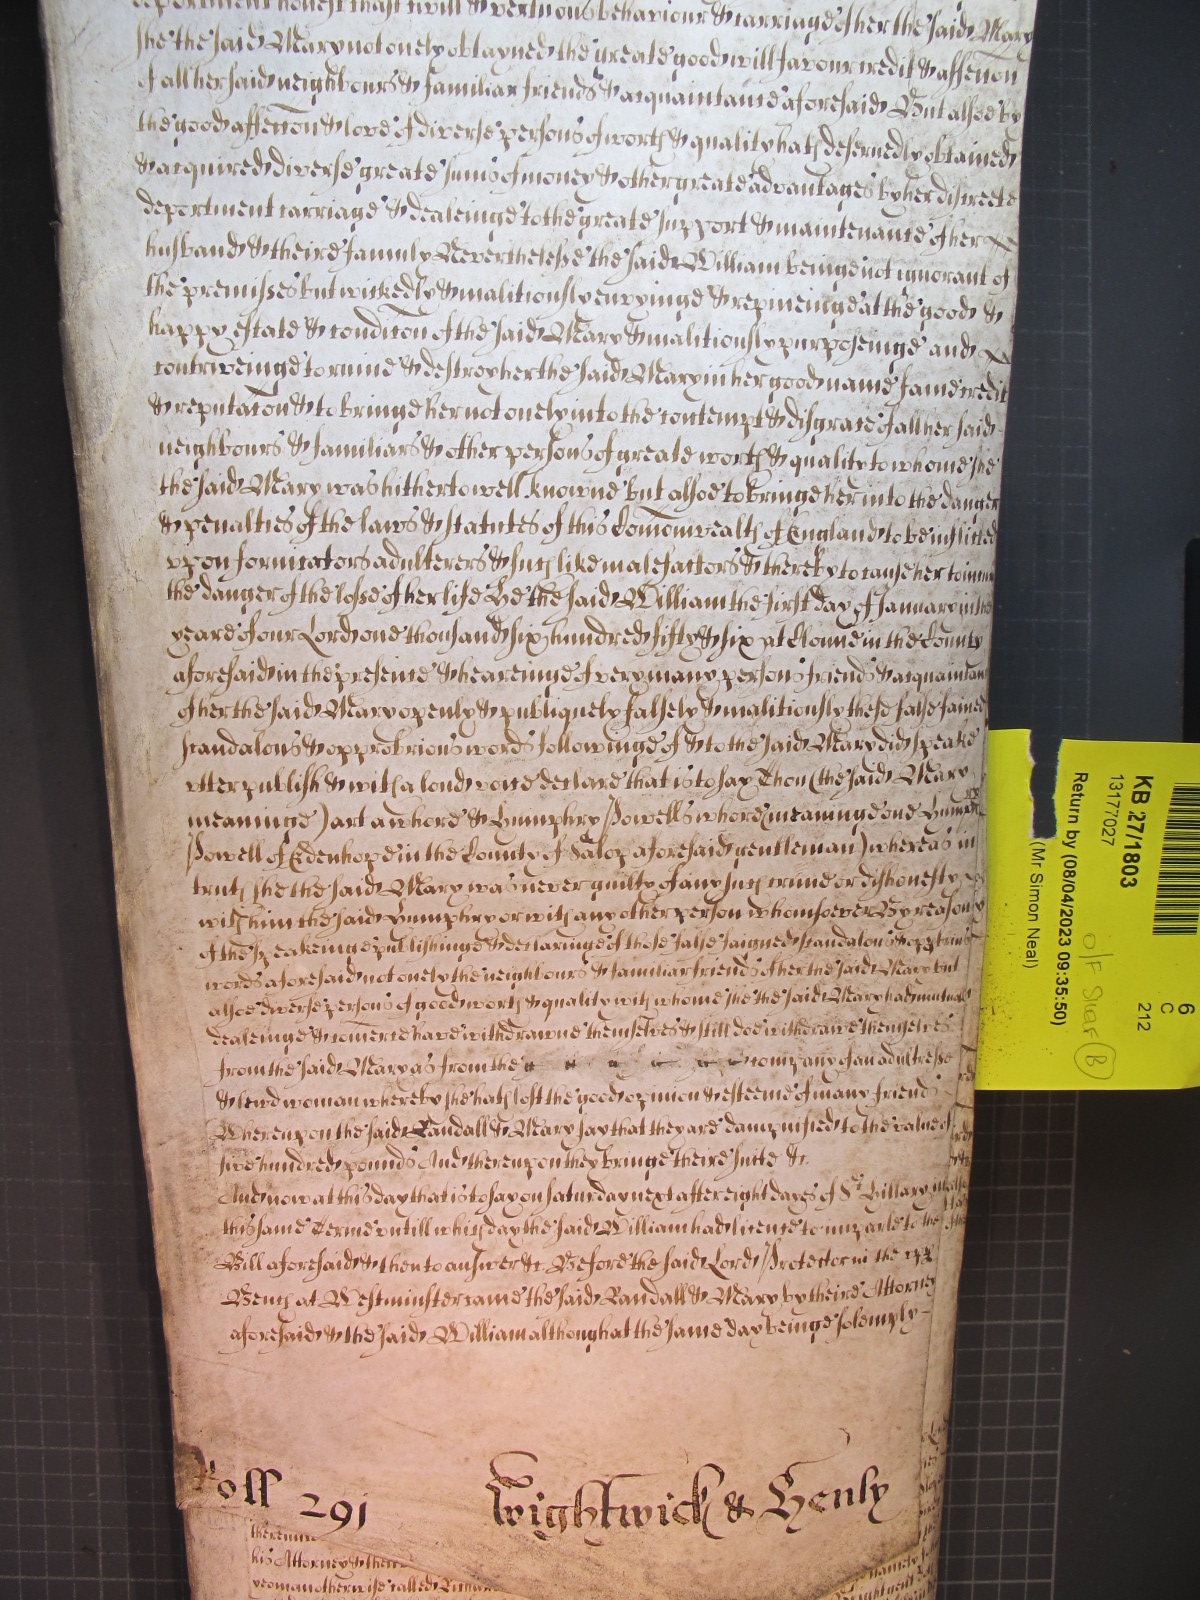 deportment honest chast civill & vertuous behaviour & carriage of her the said Mary
she the said Mary not onely obtayned the greate good will favour credit & affeccon
of all her said neighbours & familiar friends & acquaintance aforesaid But alsoe by
the good affeccon & love of diverse persons of worth & quality hath deservedly obtained
& acquired diverse greate sums of money & other greate advantages by her discreete
deportment carriage & dealeinge to the greate support & maintenance of her
husband & theire family Neverthelesse the said William beinge not ignorant of
the premisses but wickedly & malitiously envyinge & repineinge at the good &
happy estate & condicon of the said Mary & malitiously purposeinge and
contriveinge to ruine & destroy her the said Mary in her good name fame credit
& reputacon & to bringe her not onely into the contempt & disgrace of all her said
neighbours & familiars & other persons of greate worth & quality to whome she
the said Mary was hitherto well knowne but alsoe to bringe her into the danger
& penalties of the laws & statutes of this Comonwealth of England to be inflicted
upon fornicators adulterers & such like malefactors & thereby to cause her to incur
the danger of the losse of her life He the said William the first day of January in the
yeare of our Lord one thousand six hundred fifty & six at Clonne in the County
aforesaid in the presence & heareinge of very many persons friends & acquaintance
of her the said Mary openly & publiquely falsely & malitiously these false fained
scandalous & opprobrious words followinge of & to the said Mary did speake
utter publish & with a loud voice declare that is to say Thou (the said Mary
meaninge) art a whore & Humphry Powells whore (meaninge one Humfry
Powell of Edenhope in the County of Salop aforesaid gentleman) whereas in
truth she the said Mary was never guilty of any such crime or dishonesty
with him the said Humphry or with any other person whomsoever By reason
of the speakeinge publishinge & declaringe of these false faigned scandalous & opprobrious
words aforesaid not onely the neighbours & familiar friends of her the said Mary but
alsoe diverse persons of good worth & quality with whome she the said Mary had mutuall
dealeinge & comerce have withdrawne themselves & still doe withdrawe themselves
from the said Mary as from the company of an adultresse
& lewd woman whereby she hath lost the good opinion & esteeme of many friends
Whereupon the said Randall & Mary say that they are dampnified to the value of
five hundred pounds And thereupon they bringe theire suite &c
And now at this day that is to say on Saturday next after eight dayes of St Hillary in
this same Terme untill which day the said William had licence to imparle to the
Bill aforesaid & then to answer &c Before the said Lord Protector in the upper
Bench at Westminster came the said Randall & Mary by theire Attorney
aforesaid & the said William although at the same day beinge solemply
Roll 291 Wightwick & Henly
thereunto
his Attorney & there
yeoman otherwise called
KB 27/1803
13177027
Return by (08/04/2023 09:35:50)
(Mr Simon Neal)
6
C
212
O/F Shelf B